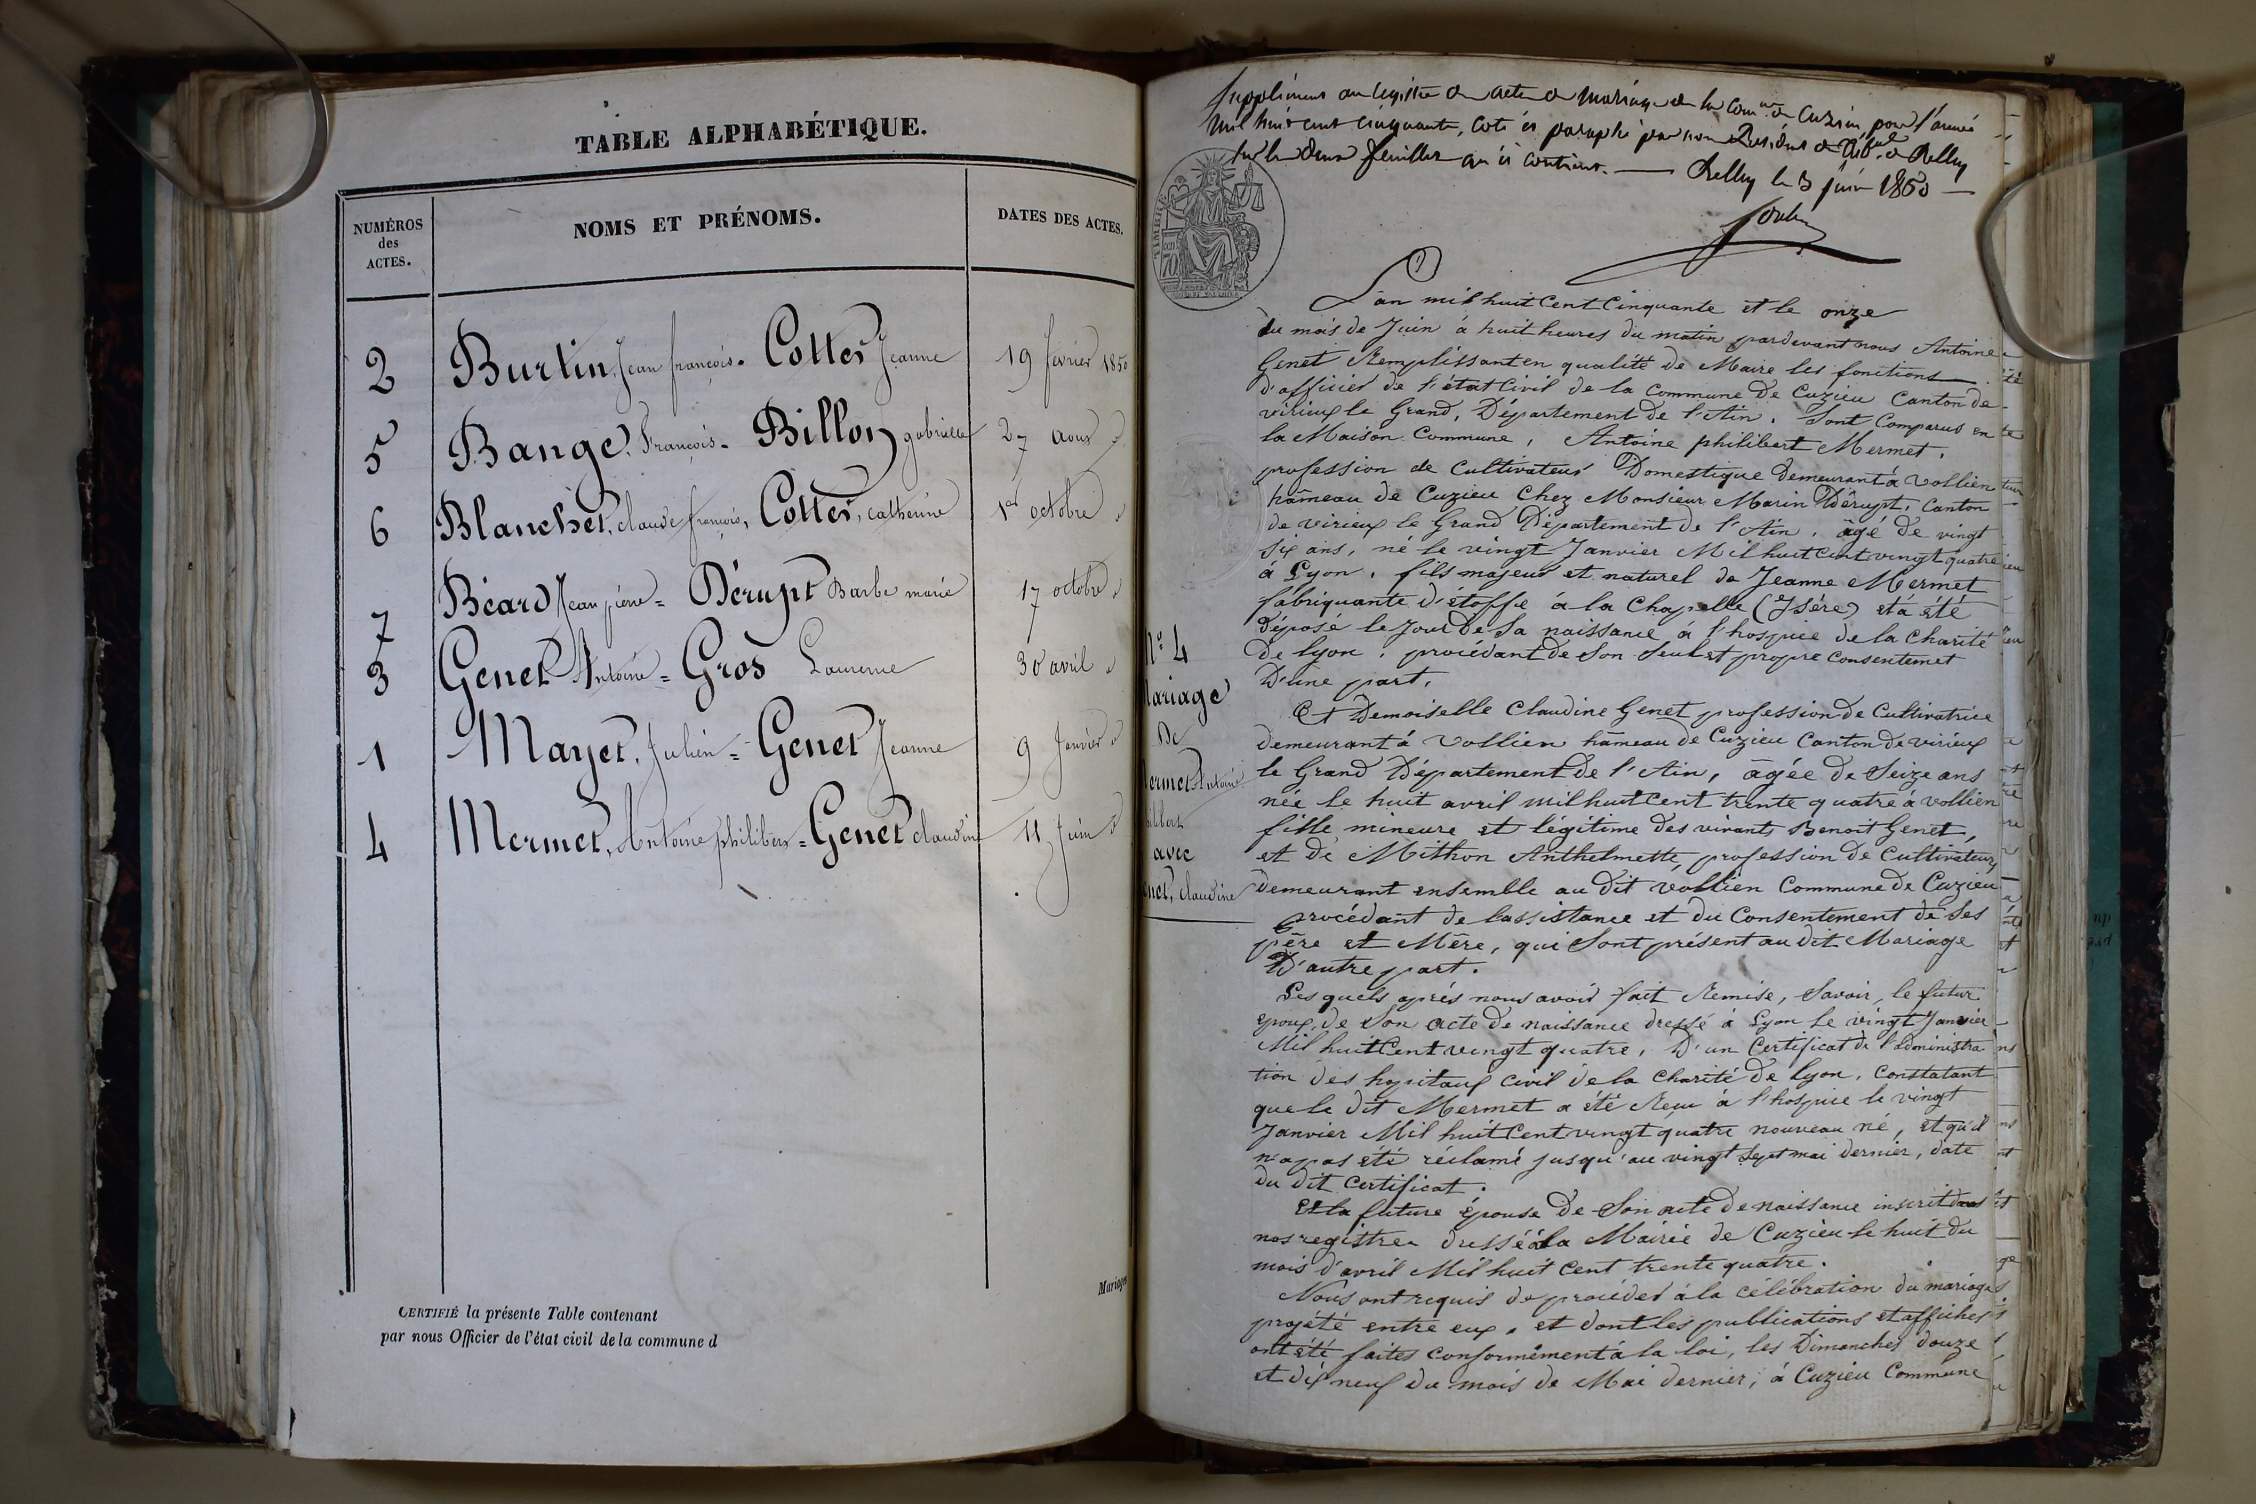 TABLE ALPHABÉTIQUE.
NUMÉROS
des
ACTES.
NOMS ET PRÉNOMS.
DATES DES ACTES.
2 Burtin, Jean françois. Cottet Jeanne 19 février 1850
5 Bange. François. Billon gabrielle 27 aout
6 Blanchet, claude françois, Cottet, catherine 1er octobre
7 Béard Jean pierre = Dérupt Barbe marie 17 octobre
3 Genet Antoine = Gros Laurence 30 avril
1 Mayet, Julien = Genet Jeanne 9 Janvier
4 Mermet, Antoine philibert = Genet claudine 11 Juin
Mariages
CERTIFIÉ la présente Table contenant
par nous Officier de l'état civil de la commune d
Supplément au registre des actes de mariage de la comne de Cuzieu, pour l'année
mil huit cent cinquante, coté et paraphé par nous Président du Tribunal de Belley
sur les deux feuillets qu'il contient. — Belley le 3 juin 1850 —
TIMBRE
70
L'an mil huit Cent Cinquante et le onze
du mois de Juin à huit heures du matin pardevant nous Antoine
Genet Remplissant en qualité de Maire les fonctions
d'officier de l'état Civil de la Commune de Cuzieu Canton de
virieux le Grand, Département de l'Ain. Sont Comparus en
la Maison Commune, Antoine philibert Mermet,
profession de Cultivateur Domestique Demeurant à Vollien
hâmeau de Cuzieu Chez Monsieur Marin Dérupt, Canton
de virieux le Grand Département de l'Ain, âgé de vingt
six ans, né le vingt Janvier Mil huit Cent vingt quatre
à Lyon, fils majeur et naturel de Jeanne Mermet
fabriquante d'étoffe à la Chapelle (Isére) et à été
déposé le Jour de Sa naissance à l'hospice de la Charité
de lyon, procédant de Son Seul et propre Consentemet
D'une part,
Et Demoiselle Claudine Genet profession de Cultivatrice
demeurant à Vollien hâmeau de Cuzieu Canton de virieux
le Grand Département de l'Ain, âgée de Seize ans
née le huit avril mil huit Cent trente quatre à vollien
fille mineure et légitime des vivants Benoit Genet,
et de Mithon Anthelmette, profession de Cultivateurs
demeurant ensemble au dit Vollien Commune de Cuzieu
procédant de l'assistance et du Consentement de Ses
père et Mère, qui Sont présent au dit Mariage
D'autre part.
Les quels aprés nous avoir fait Remise, Savoir, le futur
epoux, de Son acte de naissance dressé à Lyon le vingt Janvier
Mil huit Cent vingt quatre, D'un Certificat de l'administra
tion des hopitaux Civil de la Charité de lyon, Constatant
que le dit Mermet a été Reçu à l'hospice le vingt
Janvier Mil huit Cent vingt quatre nouveau né, et qu'il
n'a pas été réclamé jusqu'au vingt Sept mai dernier, date
du dit Certificat.
Et la future épouse de Son acte de naissance inscrit dans
nos registres dressé à la Mairie de Cuzieu le huit du
mois d'avril Mil huit Cent trente quatre.
Nous ont requis de procéder à la célébration du mariage
projété entre eux, et dont les publications et affiches
ont été faites Conformément à la loi, les Dimanches douze
et dix neuf du mois de Mai dernier, à Cuzieu Commune
N° 4
Mariage
De
Mermet Antoine
philibert
avec
Genet, claudine